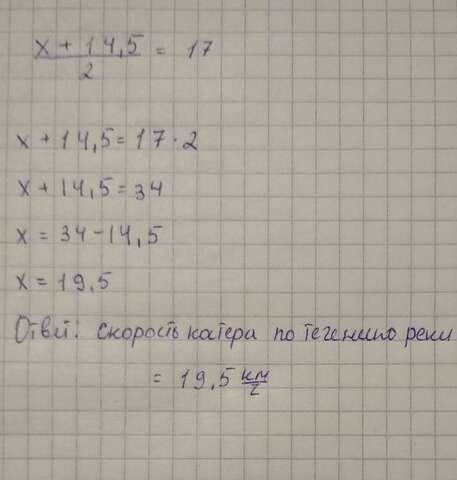 x + 14,5 / 2 = 17
x + 14,5 = 17 · 2
x + 14,5 = 34
x = 34 - 14,5
x = 19,5
Ответ: скорость катера по течению реки
= 19,5 км/г